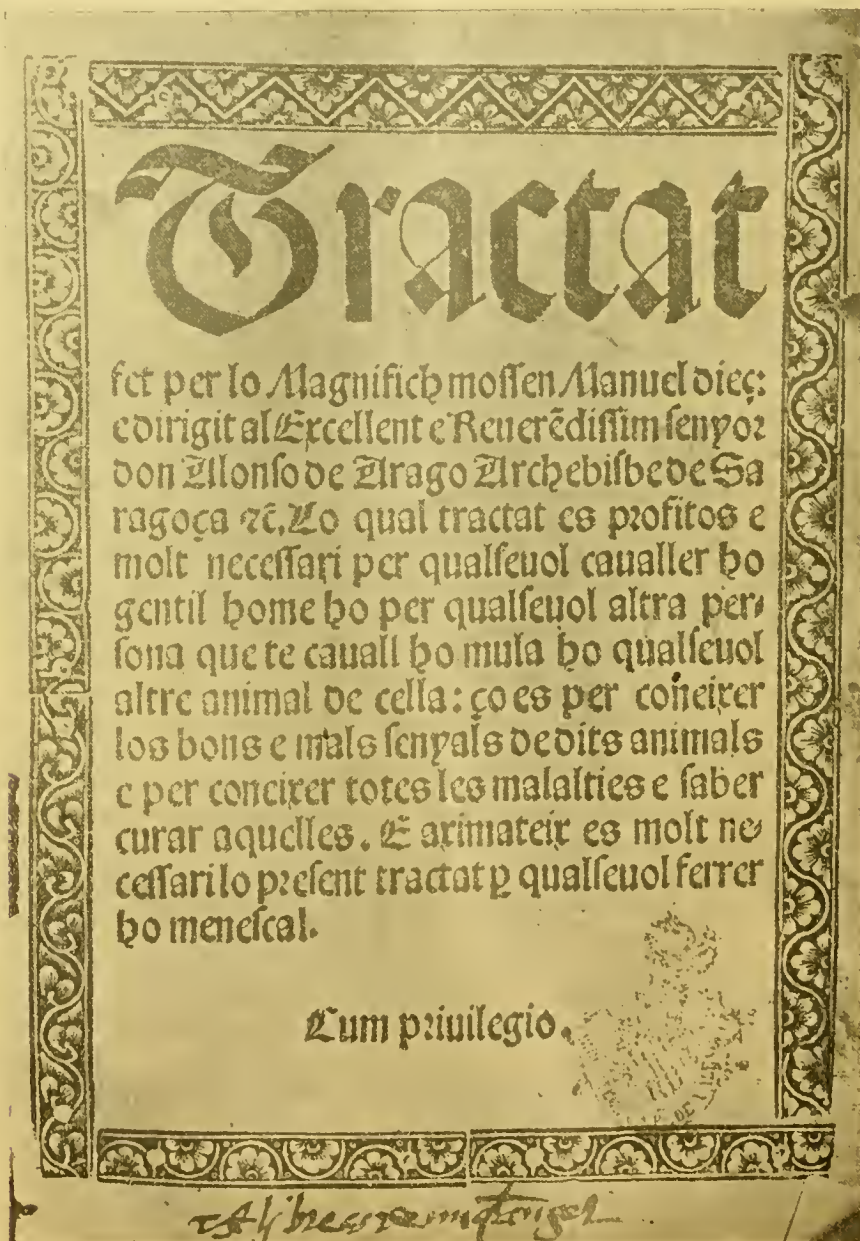 Tractat
fet per lo Magnifich mossen Manuel dieç:
e dirigit al Excellent e Reuerẽdissim senyor
don Alonso de Arago Archebisbe de Sa
ragoça ⁊c̃. Lo qual tractat es profitos e
molt necessari per qualseuol caualler ho
gentil home ho per qualseuol altra per-
sona que te cauall ho mula ho qualseuol
altre animal de cella: ço es per coneixer
los bons e mals senyals de dits animals
e per coneixer totes les malalties e saber
curar aquelles. E aximateix es molt ne-
cessari lo present tractat ꝑ qualseuol ferrer
ho menescal.
Cum priuilegio.